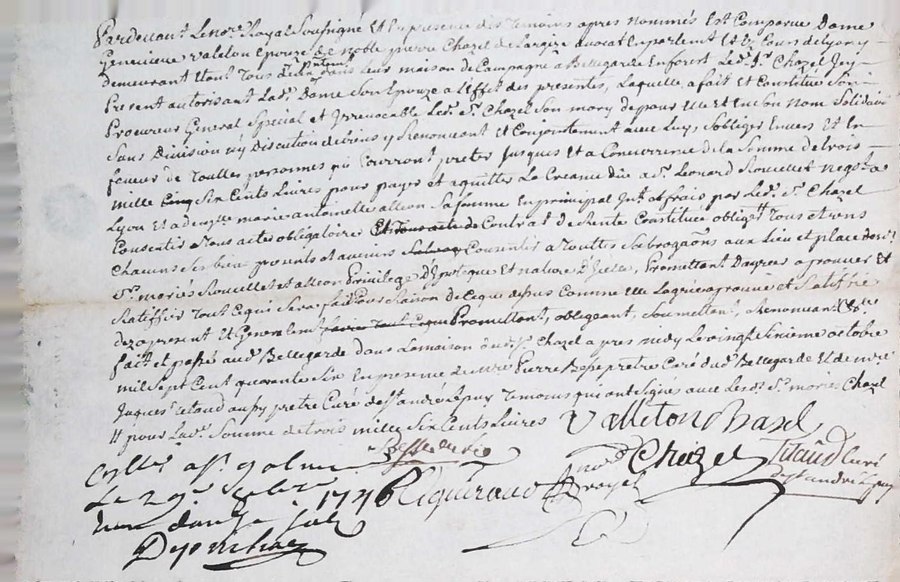 Pardevant Le no.re Royal Soussigné Et En presence des Temoins apres nommés Est Comparüe Dame
genevieve valleton Epouze de noble pierre Chazel avocat En parlement Et Es Cours de lyon y
demeurant Etant Tous Deux dans leur maison de Campagne a Bellegarde En forest Led. Sr. Chazel Icy
Present autorisant Lad. Dame Son Epouze a L'Effet des presentes, Laquelle a fait et Constitué Son
Procureur General Special et Irrevocable Led. Sr. Chazel Son mary de pour Elle et En son Nom Solidaire
Sans Division ny Discution de biens y Renoncant Et Conjointement avec Luy, s'obliger Envers Et En
faveur de Touttes personnes qui pourront prester Jusques Et a Concurrence de la Somme de trois
mille Cinq Six Cents Livres pour payer et aquitter La Creance düe a Sr. Leonard Rouellet negt. a
Lyon Et a demlle marie antoinette alleon Sa femme En principal Int. et frais par Led. Sr. Chazel
Consentir a Tous actes obligatoires Et Tous acte de Contrat de Rente Constituée obliger Tous Et Uns
Chacuns Ses biens presents et avenirs Consentir a Touttes Subrogaôns aux Lieu et place desd.
Srs. mariés Rouellet et alleon Privilege D'Hypoteque Et nature D'Icelles, Promettant D'agreer aprouver Et
Ratiffier Tout Ce qui Sera fait pour Raison de Ce que dessus Comme Elle L'agrée aprouve et Ratiffie
dez a present Et Generalemt faire Tout Ce que Promettant, obligeant, Soumettant, Renoncant
fait et passé aud. Bellegarde dans La maison dud. Sr. Chazel apres midy Le vingt Sixieme octobre
mil Sept Cent quarante Six En presence de mre Pierre Besse pretre Curé dud. Bellegarde Et de mre
Jaques Titaud aussy pretre Curé de St. andré Le puy Temoins qui ont Signé avec Lesd. Srs. mariés Chazel
# pour Lad. Somme de trois mille Six Cents Livres Valleton Chazel
Besse Curé Chazel Titaud Curé
de St andré Le puy
Collné a St galmier
Le 29e octobre 1746 Riguiraud no.re Royal
douze Sols